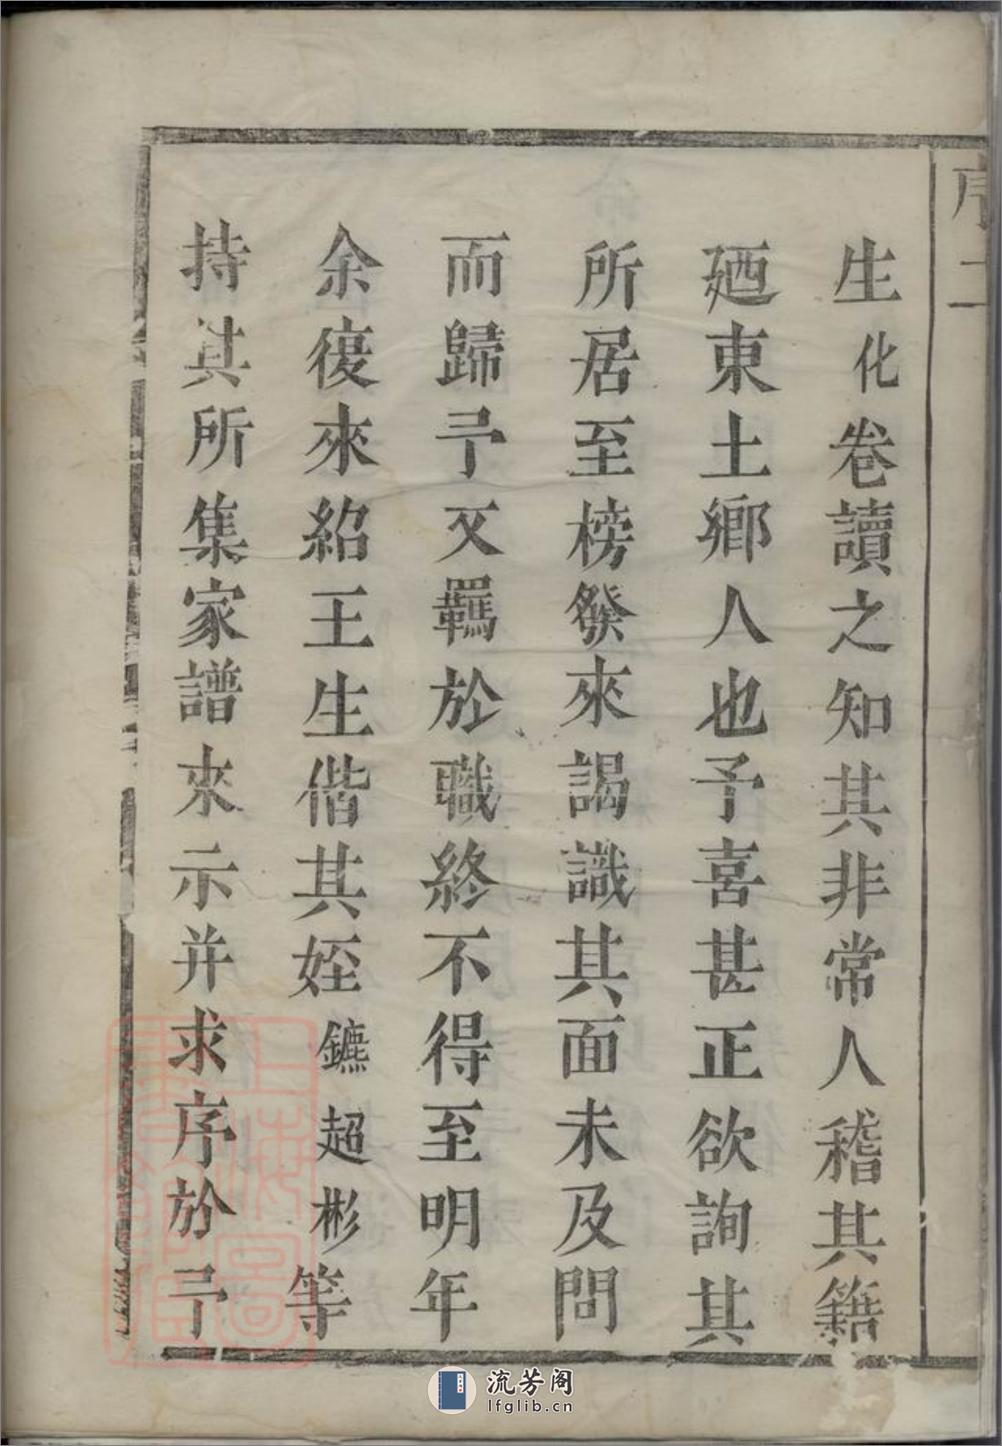 序二
生化卷讀之知其非常人稽其籍
廼東土鄉人也予喜甚正欲詢其
所居至榜發來謁識其面未及問
而歸予又羈於職終不得至明年
余復來紹王生偕其姪鑣超彬等
持其所集家譜來示并求序於予
流芳阁
lfglib.cn